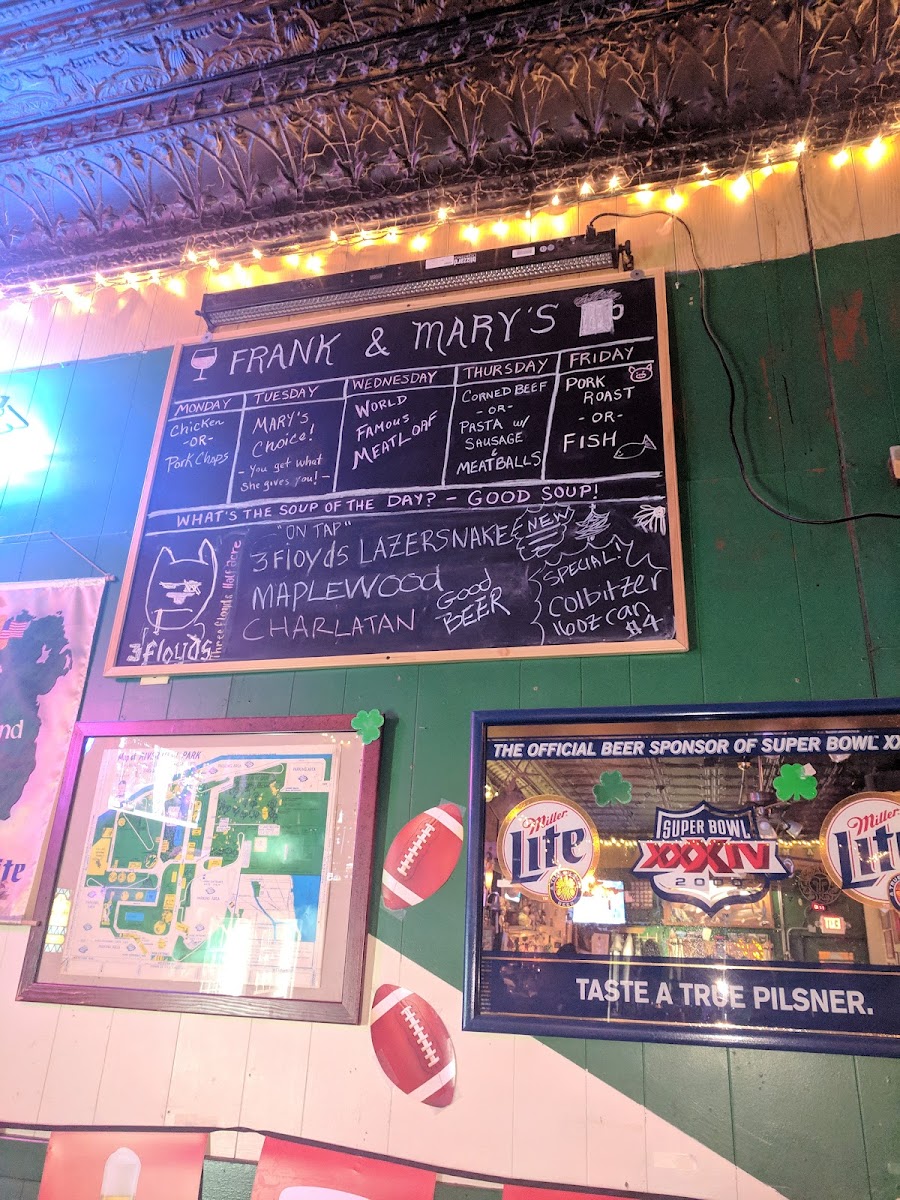 FRANK & MARY'S
MONDAY
Chicken
-OR-
Pork Chops
TUESDAY
MARY'S
Choice!
- You get what
She gives you! -
WEDNESDAY
WORLD
FAMOUS
MEATLOAF
THURSDAY
CORNED BEEF
-OR-
PASTA w/
SAUSAGE
&
MEATBALLS
FRIDAY
PORK
ROAST
-OR-
FISH
WHAT'S THE SOUP OF THE DAY? - GOOD SOUP!
"ON TAP"
3 Floyds LAZERSNAKE
NEW
MAPLEWOOD
CHARLATAN
GOOD
BEER
SPECIAL!
Colbitzer
16oz can
$4
3 floyds
nd
ite
PARK
THE OFFICIAL BEER SPONSOR OF SUPER BOWL XX
Miller
Lite
SUPER BOWL
XXXIV
Miller
Lit
TASTE A TRUE PILSNER.